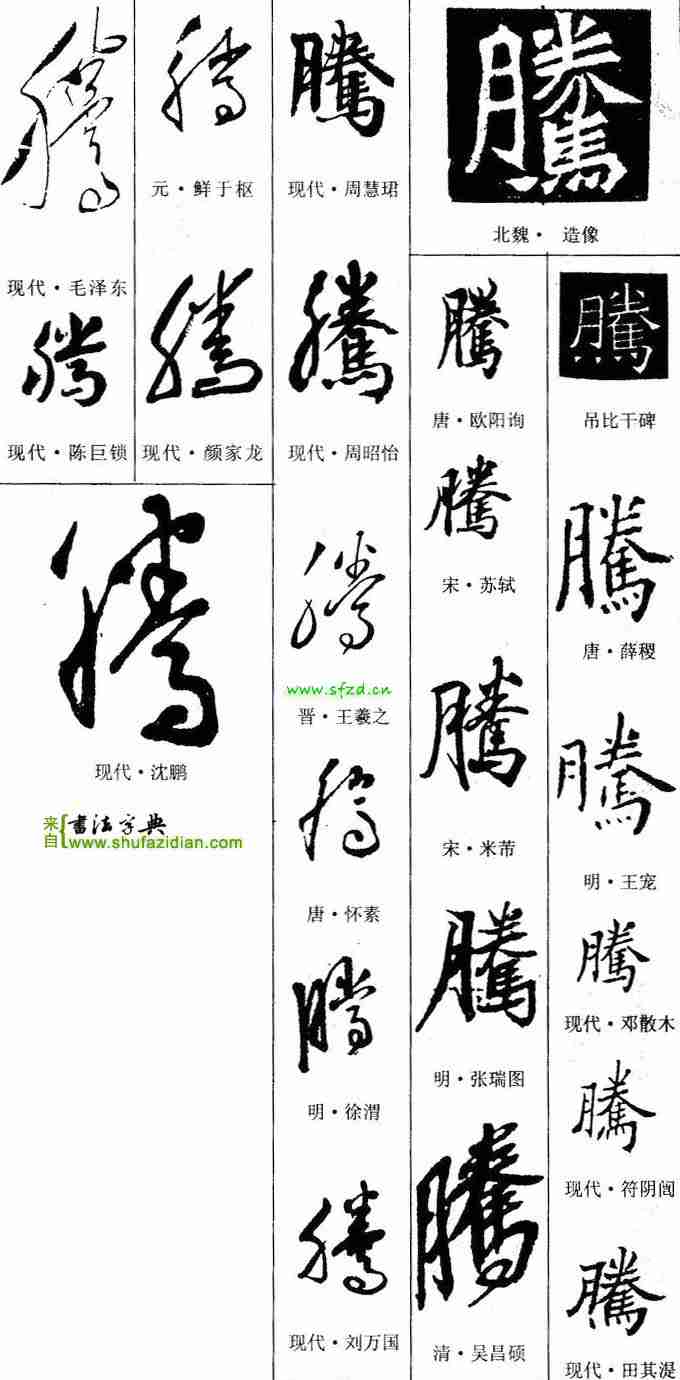 騰
騰
騰
騰
元·鲜于枢
现代·周慧珺
北魏· 造像
现代·毛泽东
騰
騰
騰
騰
騰
唐·欧阳询
吊比干碑
现代·陈巨锁
现代·颜家龙
现代·周昭怡
騰
騰
騰
騰
宋·苏轼
唐·薛稷
www.sfzd.cn
晋·王羲之
现代·沈鹏
騰
騰
騰
来自{书法字典
www.shufazidian.com
宋·米芾
明·王宠
唐·怀素
騰
騰
騰
现代·邓散木
明·张瑞图
明·徐渭
騰
騰
騰
现代·符阴闿
现代·刘万国
清·吴昌硕
騰
现代·田其湜